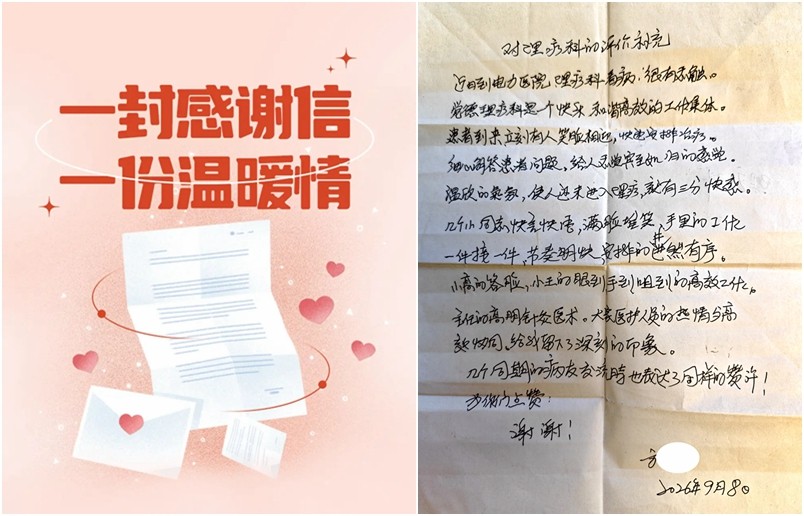 一封感谢信
一份温暖情
对理疗科的评价补充
近日到电力医院,理疗科看病,很有感触。
觉德理疗科是个快乐和谐高效的工作集体。
患者到来立刻有人笑脸相迎,快速安排治疗。
细心解答患者问题,给人感觉宾至如归的感觉。
温欣的气氛,使人还未进入理疗,就有三分快感。
几个小同志快言快语,满脸堆笑,手里的工作
一件接一件,节奏明快,安排的井然有序。
小高的笑脸,小王的眼到手到咀到的高效工作。
主任的高明针灸医术。大家医护人员的热情与高
效协同,给我留下了深刻的印象。
几个同期的病友交流时也表达了同样的赞许!
为你们点赞!
谢谢!
方
2026年9月8日